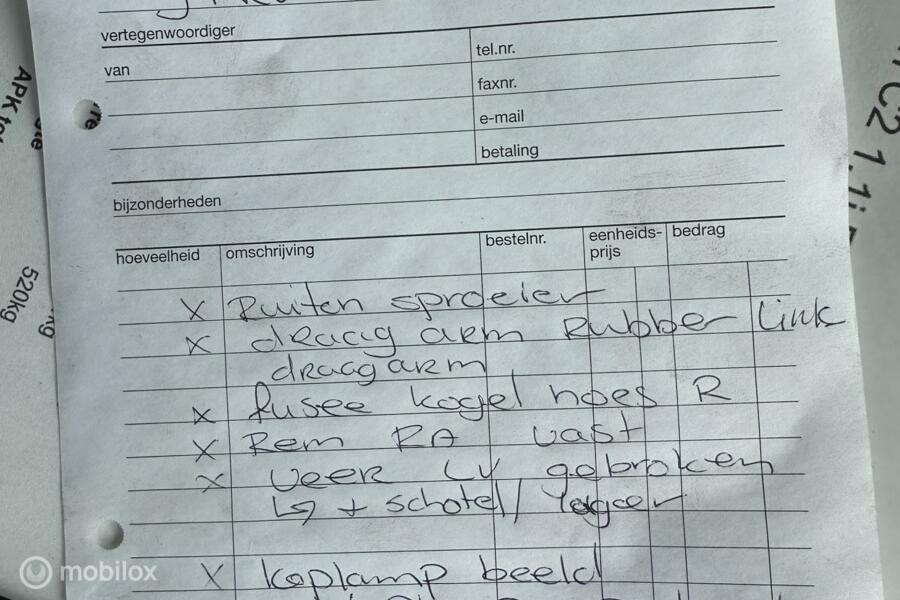 vertegenwoordiger
van
tel.nr.
faxnr.
e-mail
betaling
bijzonderheden
hoeveelheid omschrijving bestelnr. eenheids-prijs bedrag
X Ruiten sproeier
X draag arm Rubber link
draagarm
X fusee kogel hoes R
X Rem RA vast
X veer LV gebroken
↳ + schotel / lager
X koplamp beeld
APK
520kg
C2 1.1i
mobilox